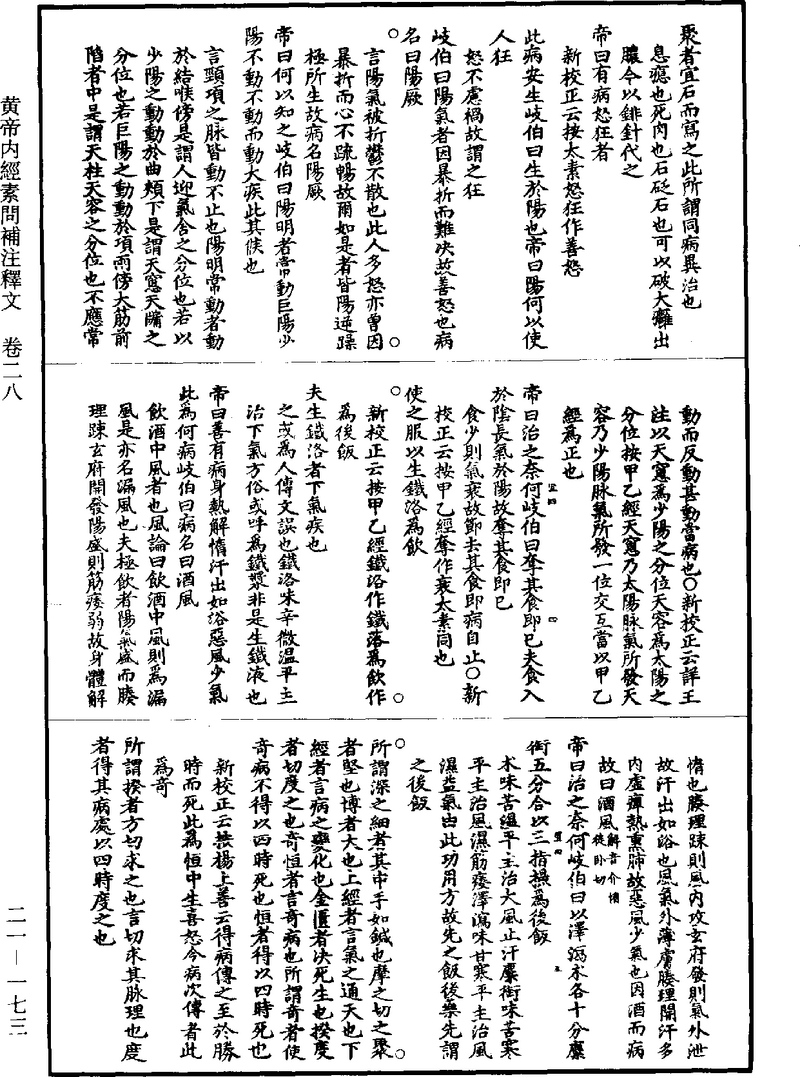 聚者宜石而寫之此所謂同病異治也
息瘜也死肉也石砭石也可以破大癰出
膿今以鈹針代之
帝曰有病怒狂者
新校正云按太素怒狂作善怒
此病安生岐伯曰生於陽也帝曰陽何以使
人狂
怒不慮禍故謂之狂
岐伯曰陽氣者因暴折而難決故善怒也病
名曰陽厥
言陽氣被折鬱不散也此人多怒亦曾因
暴折而心不疏暢故爾如是者皆陽逆躁
極所生故病名陽厥
帝曰何以知之岐伯曰陽明者常動巨陽少
陽不動不動而動大疾此其候也
言頸項之脉皆動不止也陽明常動者動
於結喉傍是謂人迎氣舍之分位也若以
少陽之動動於曲頰下是謂天窻天牖之
分位也若巨陽之動動於項兩傍大筋前
陷者中是謂天柱天容之分位也不應常
動而反動甚動當病也〇新校正云詳王
注以天窻爲少陽之分位天容爲太陽之
分位按甲乙經天窻乃太陽脉氣所發天
容乃少陽脉氣所發一位交互當以甲乙
經爲正也
帝曰治之奈何岐伯曰奪其食即已夫食入
於陰長氣於陽故奪其食即已
食少則氣衰故節去其食即病自止〇新
校正云按甲乙經奪作衰太素同也
使之服以生鐵洛爲飲
新校正云按甲乙經鐵洛作鐵落爲飲作
爲後飯
夫生鐵洛者下氣疾也
之或爲人傳文誤也鐵洛味辛微温平主
治下氣方俗或呼爲鐵漿非是生鐵液也
帝曰善有病身熱解惰汗出如浴惡風少氣
此爲何病岐伯曰病名曰酒風
飲酒中風者也風論曰飲酒中風則爲漏
風是亦名漏風也夫極飲者陽氣盛而腠
理踈玄府開發陽盛則筋痿弱故身體解
惰也腠理踈則風内攻玄府發則氣外泄
故汗出如浴也風氣外薄膚腠理開汗多
内虚癉熱熏肺故惡風少氣也因酒而病
故曰酒風解音介惰徒卧切
帝曰治之奈何岐伯曰以澤瀉术各十分麋
銜五分合以三指撮爲後飯
术味苦温平主治大風止汗麋銜味苦寒
平主治風濕筋痿澤瀉味甘寒平主治風
濕益氣由此功用方故先之飯後藥先謂
之後飯
所謂深之細者其中手如鍼也摩之切之聚
者堅也博者大也上經者言氣之通天也下
經者言病之變化也金匱者決死生也揆度
者切度之也奇恒者言奇病也所謂奇者使
奇病不得以四時死也恒者得以四時死也
新校正云按楊上善云得病傳之至於勝
時而死此爲恒中生喜怒令病次傳者此
爲奇
所謂揆者方切求之也言切求其脉理也度
者得其病處以四時度之也
黄帝内經素問補注釋文 卷二八
二一—一七三